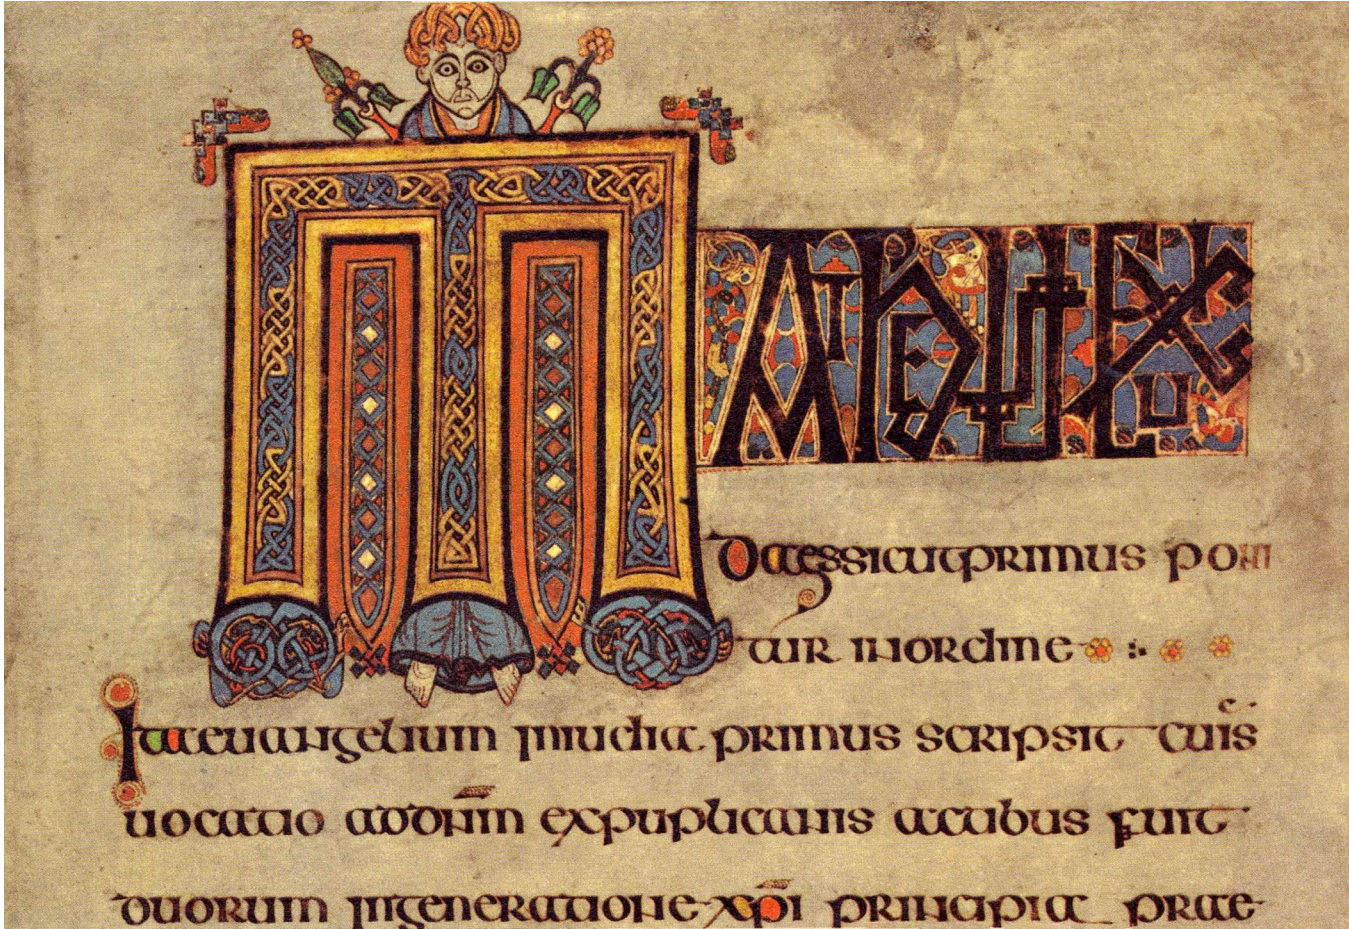 MATHEUS EX IU
daessicutprimus poni
tur in ordine
Ita euangelium in iudia primus scripsit cuis
uocatio ad dnm ex puplicanis actibus fuit
duorum in generatione xpi principia prae